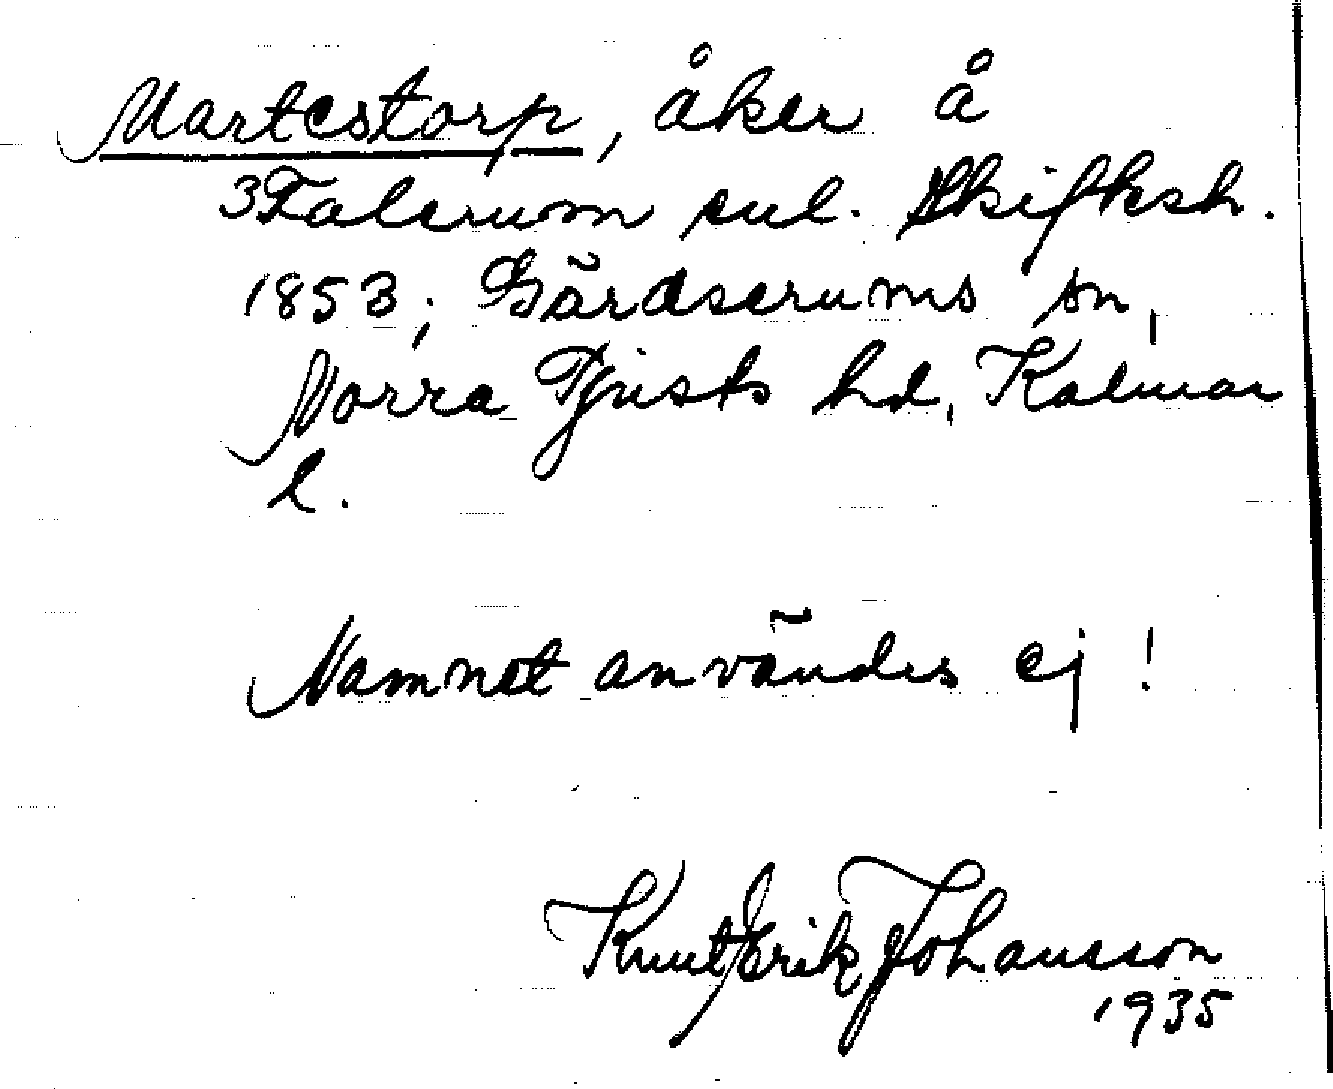 Martestorp, åker å
3Falerum enl. Skifksh.
1853; Gärdserums sn,
Norra Tjusts hd, Kalmar
l.
Namnet användes ej!
Knut Erik Johansson
1935